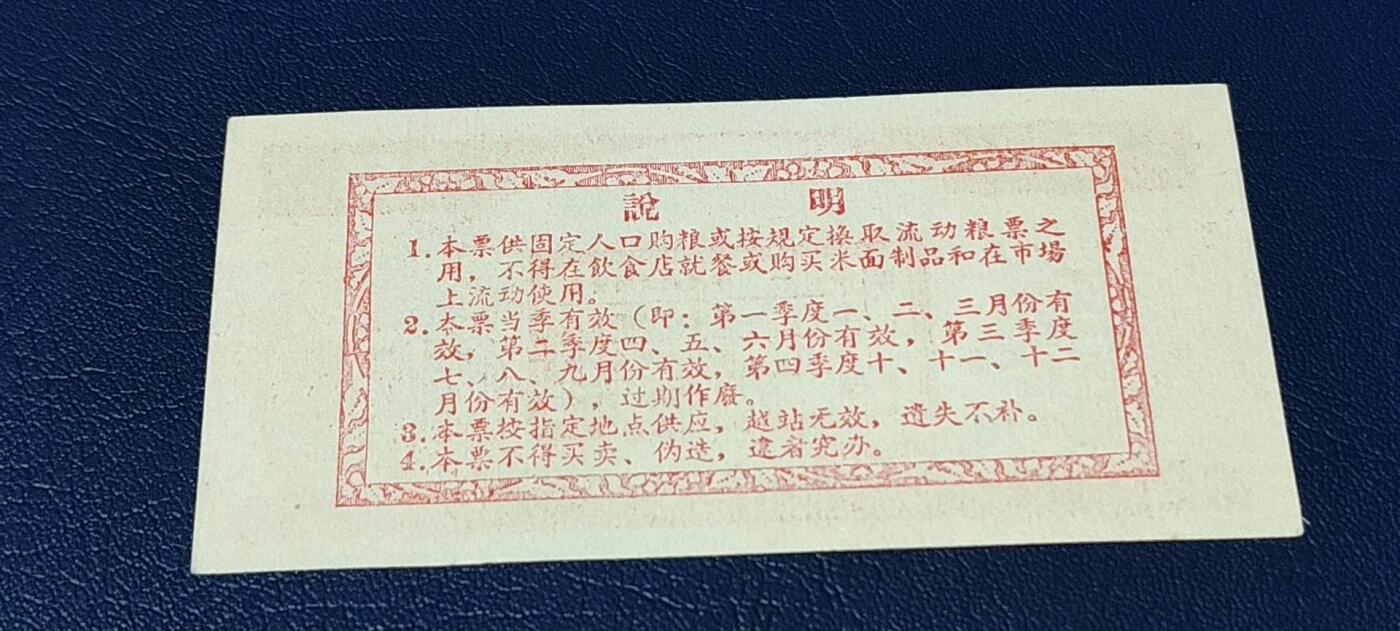 說 明
1. 本票供固定人口购粮或按规定換取流动粮票之
用，不得在飲食店就餐或购买米面制品和在市場
上流动使用。
2. 本票当季有效（即：第一季度一、二、三月份有
效，第二季度四、五、六月份有效，第三季度
七、八、九月份有效，第四季度十、十一、十二
月份有效），过期作廢。
3. 本票按指定地点供应，越站无效，遺失不补。
4. 本票不得买卖、伪造，違者究办。